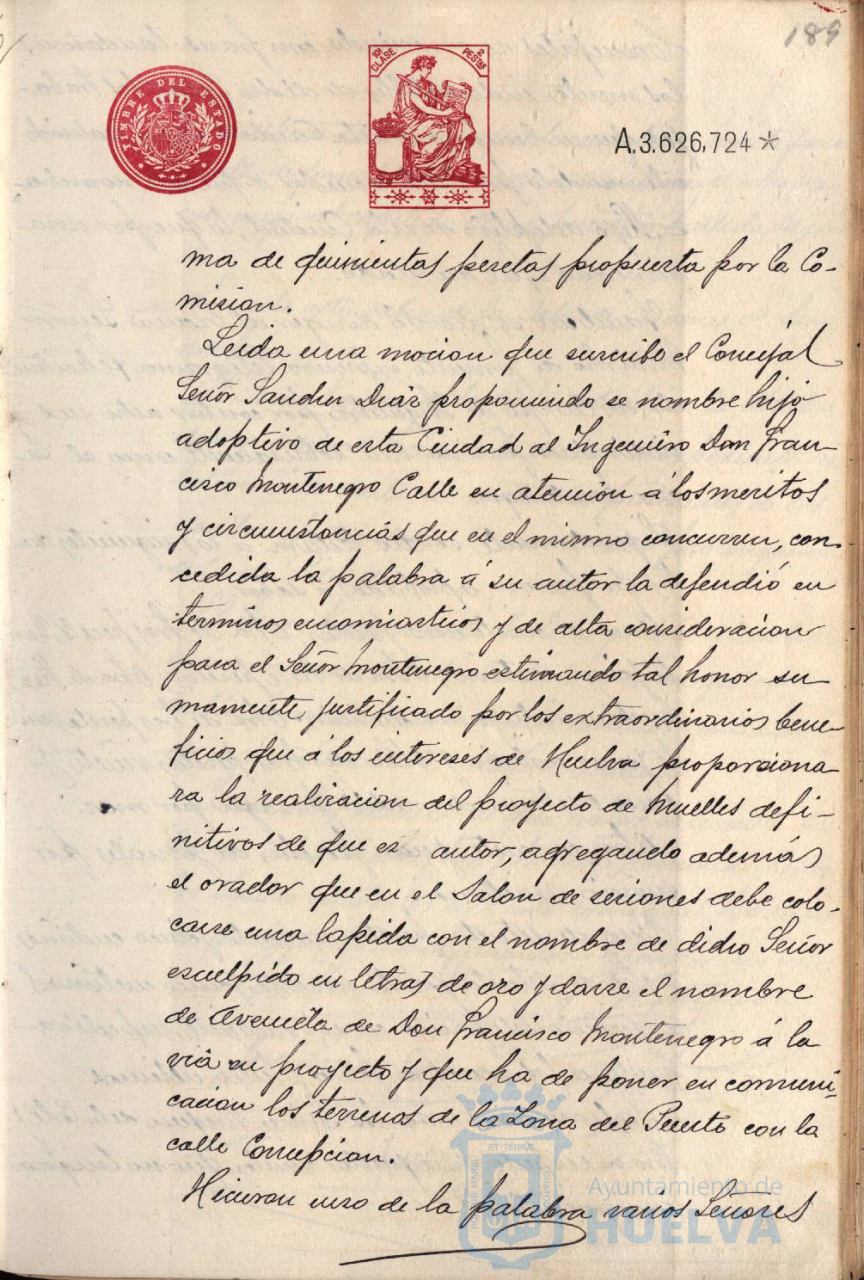 189
TIMBRE DEL ESTADO
10ª CLASE 2 PESTAS
A.3.626,724*
ma de quinientas pesetas propuesta por la Co-
mision.
Leida una mocion que suscribe el Concejal
Señor Sanchez Diáz proponiendo se nombre hijo
adoptivo de esta Ciudad al Ingeniero Don Fran-
cisco Montenegro Calle en atencion á los meritos
y circunstancias que en el mismo concurren, con-
cedida la palabra á su autor la defendió en
terminos encomiasticos y de alta consideracion
para el Señor Montenegro estimando tal honor su
mamente justificado por los extraordinarios bene-
ficios que á los intereses de Huelva proporciona-
ra la realizacion del proyecto de Muelles defi-
nitivos de que es autor, agregando además
el orador que en el Salon de sesiones debe colo-
carse una lapida con el nombre de dicho Señor
esculpido en letras de oro y darse el nombre
de Avenida de Don Francisco Montenegro á la
via en proyecto y que ha de poner en comuni-
cacion los terrenos de la Zona del Puerto con la
calle Concepcion.
Hicieron uso de la palabra varios Señores
Ayuntamiento de
HUELVA